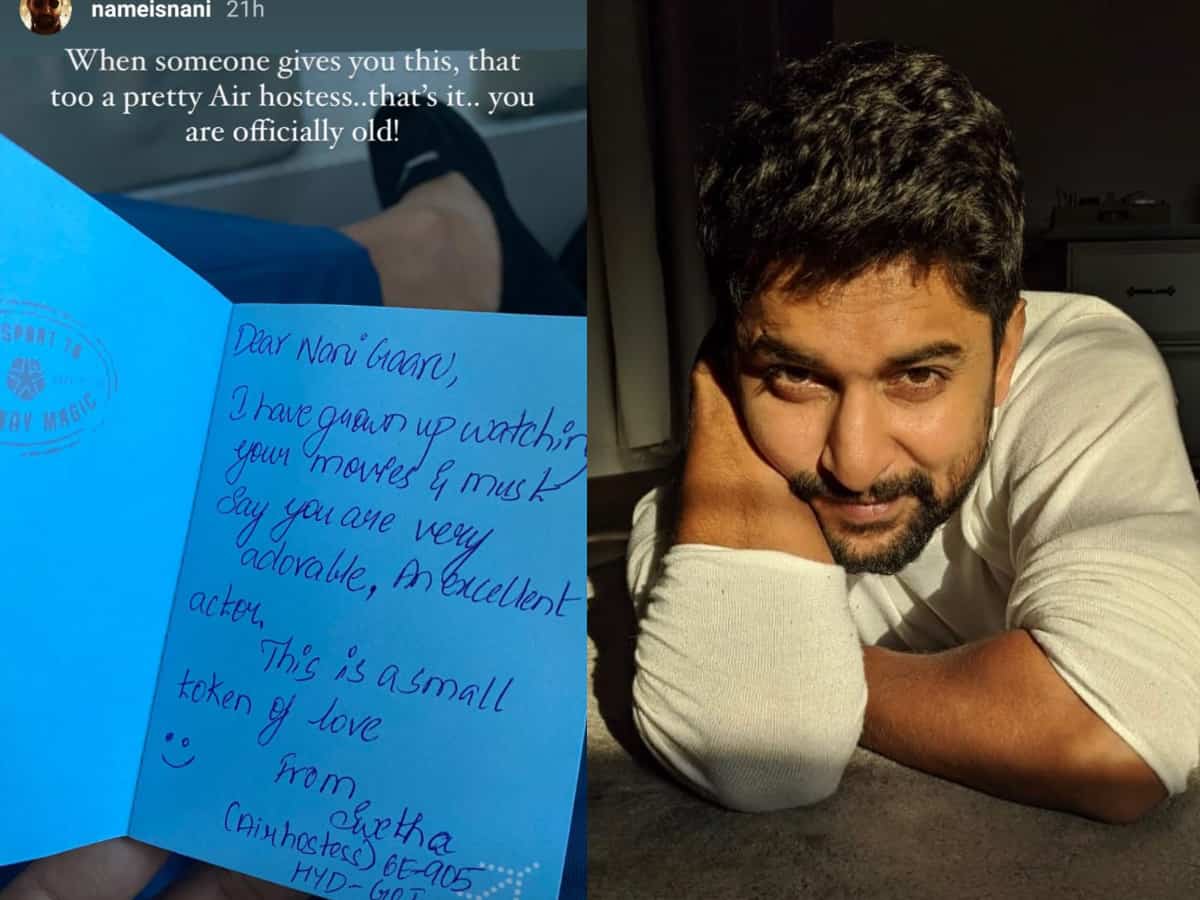 nameisnani 21h
When someone gives you this, that
too a pretty Air hostess..that's it.. you
are officially old!
SPORT TO
WAY MAGIC
Dear Nani Gaaru,
I have grown up watching
your movies & must
Say you are very
adorable, An excellent
actor,
This is a small
token of love
From
Swetha
(Airhostess) 6E-905
HYD-GOI